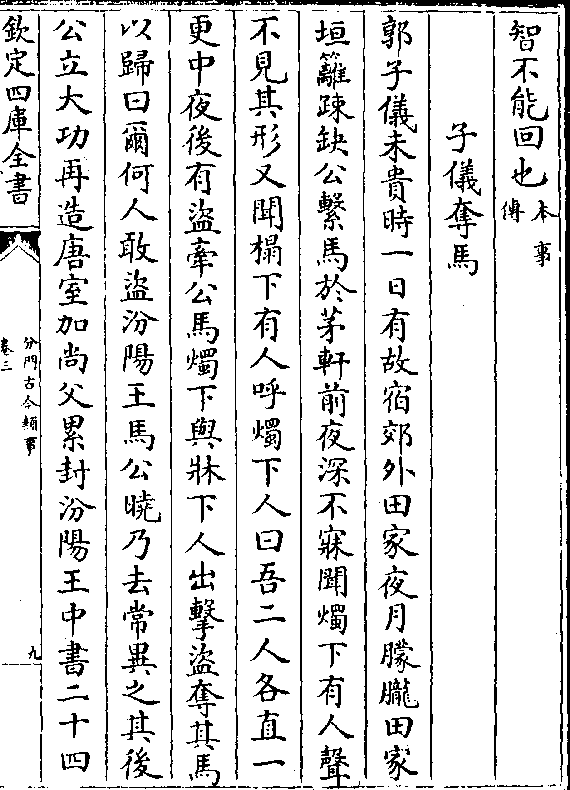 智不能回也本事傳
子儀奪馬
郭子儀未貴時一日有故宿郊外田家夜月朦朧田家
垣籬疎缺公繫馬於茅軒前夜深不寐聞燭下有人聲
不見其形又聞榻下有人呼燭下人曰吾二人各直一
更中夜後有盜牽公馬燭下與牀下人出擊盜奪其馬
以歸曰爾何人敢盜汾陽王馬公曉乃去常異之其後
公立大功再造唐室加尚父累封汾陽王中書二十四
欽定四庫全書
分門古今類事
卷三
九